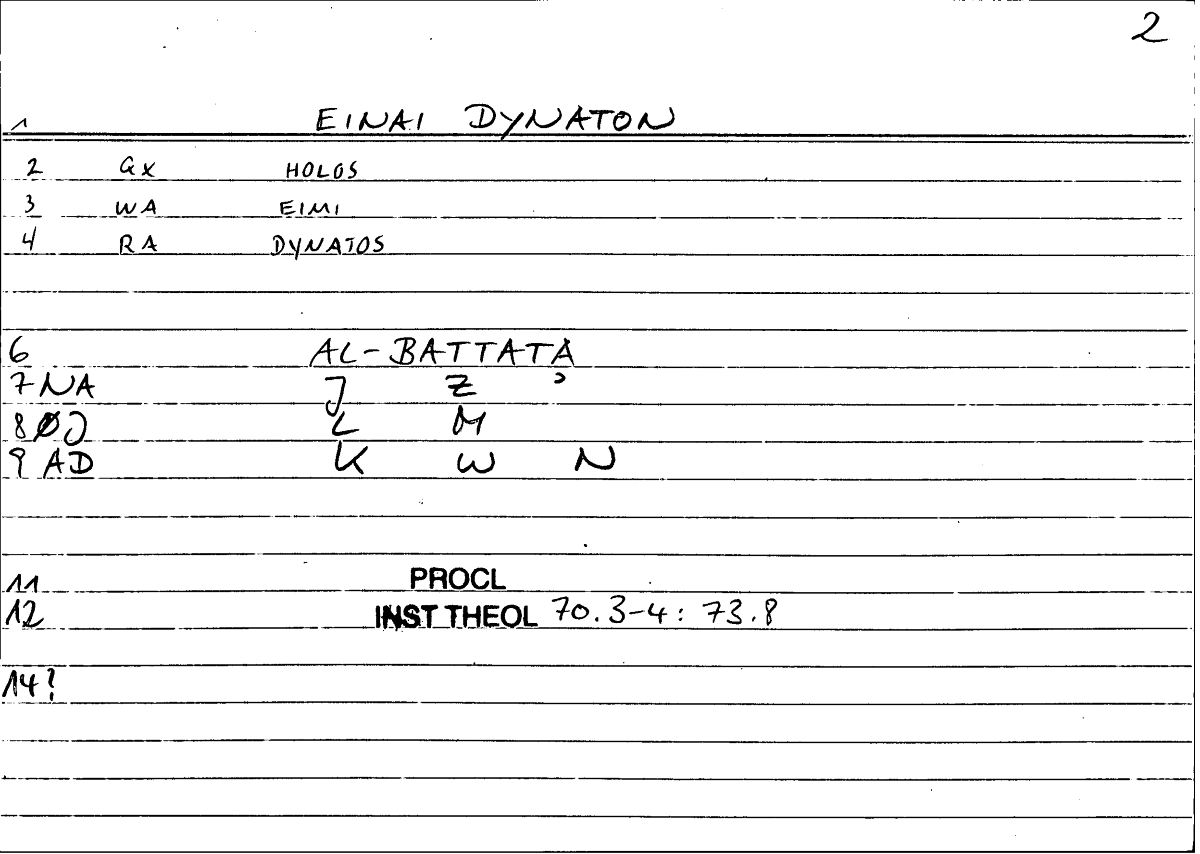 2
1 EINAI DYNATON
2 GX HOLOS
3 WA EIMI
4 RA DYNATOS
6 AL-BATTATA
7 NA J Z ʾ
8 ØJ L M
9 AD K W N
11 PROCL
12 INST THEOL 70.3-4: 73.8
14?